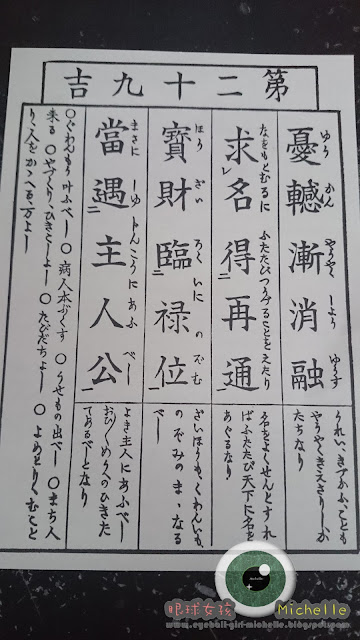 第二十九吉
憂轗漸消融
ゆう かん やうやく しよう ゆうす
うれい、きづかふ、ことも
やうやくきえさりし、か
たちなり
求レ名得二再通一
なをもとむるに ふたたびつうずることをえたり
名をよくせんとすれ
ばふたたび天下に名を
あぐるなり
寶財臨二禄位一
ほう ざい ろくいに のぞむ
ざいほうも、くわんいも、
のぞみのまゝなる
べし
當遇二主人公一
まさに しゆじんこうに あふべし
よき主人にあふべし
めうへのひきた
てあるべしとなり
○ぐわんもう叶ふべし ○病人本ぷくす ○うせもの出べし ○まち人
来る ○やづくり、ひきこしよし ○たびだちよし ○よめとりむこと
り、人をかゝへる万よし
眼球女孩 Michelle
www.eyeball-girl-michelle.blogspot.com